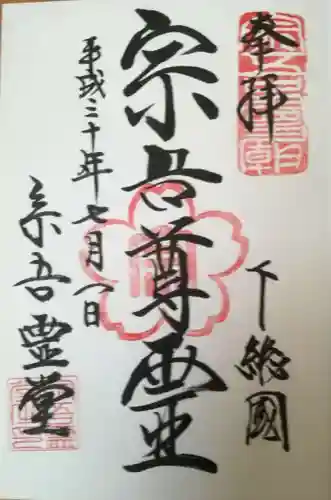 奉拝
下總國
宗吾尊霊
平成三十年七月八日
宗吾霊堂